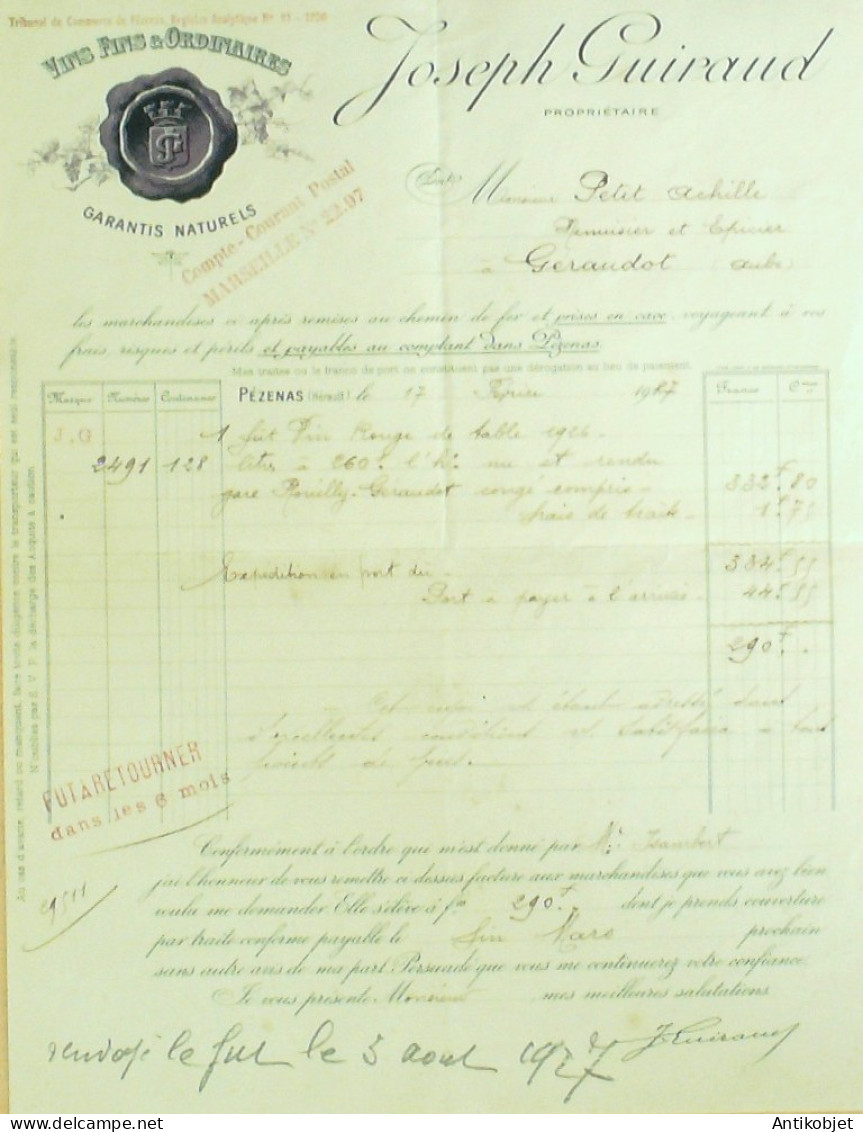 Tribunal de Commerce de Pézenas, Registre Analytique Nº 91 - 1920
VINS FINS & ORDINAIRES
JG
GARANTIS NATURELS
Joseph Guiraud
PROPRIÉTAIRE
Compte-Courant Postal
MARSEILLE Nº 22.07
Doit
Monsieur Petit Achille
et Epicier
à Géraudot (Aube)
les marchandises ci après remises au chemin de fer et prises en cave, voyageant à vos
frais, risques et périls et payables au comptant dans Pézenas.
Mes traites ou le franco de port ne constituent pas une dérogation au lieu de paiement.
Marque Numéros Contenance PÉZENAS (Hérault) le 17 Février 1927 Francs Cmes
J.G 1 fût Vin Rouge de table 1926
2491 128 litres à 260f l'ho nu et rendu
gare Rouilly-Géraudot congé compris 332f.80
frais de traite 1f.75
Expédition en port dû 334f.55
Port à payer à l'arrivée 44f.55
290f.
et étant adressé dans
d'excellentes conditions et satisfaire à tous
points de vue.
FUT A RETOURNER
dans les 6 mois
Au cas d'avarie, retard ou manquant, faire toute diligence contre le transporteur qui est seul responsable
N'oubliez pas S. V. P. la décharge des Acquits à caution
Conformément à l'ordre que m'est donné par Mr. Isambert
j'ai l'honneur de vous remettre ci-dessus facture aux marchandises que vous avez bien
voulu me demander. Elle s'élève à fcs 290f. dont je prends couverture
par traite conforme payable le fin Mars prochain
sans autre avis de ma part. Persuadé que vous me continuerez votre confiance
Je vous présente Monsieur mes meilleures salutations
J. Guiraud
renvoyé le fut le 5 aout 1927
Antikobjet - www.delcampe.net